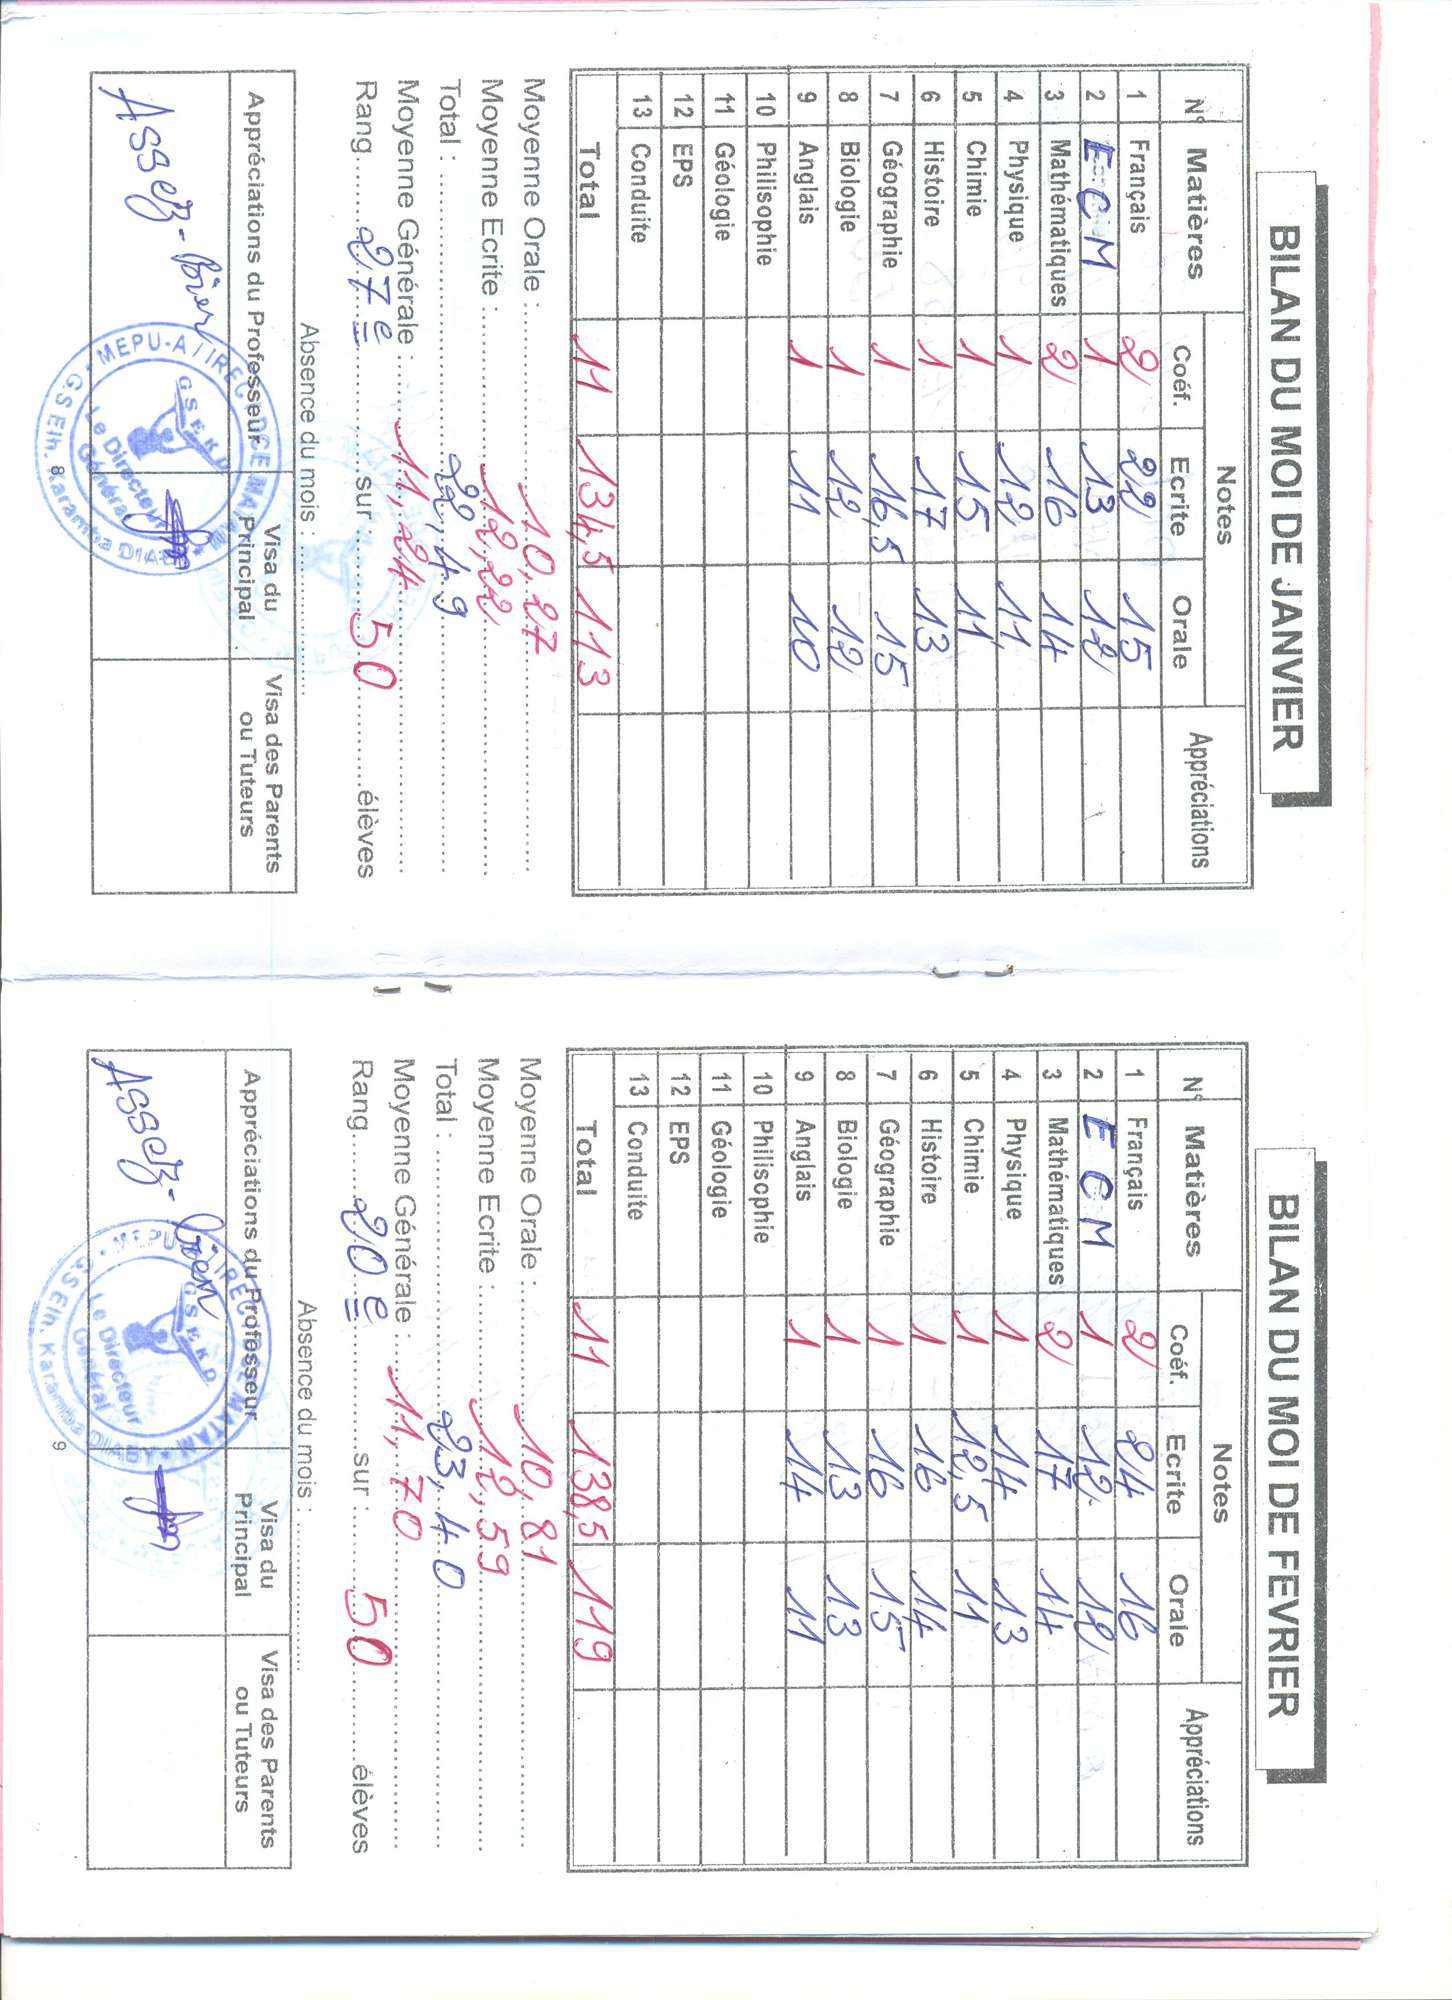 BILAN DU MOI DE JANVIER
N° Matières Notes Appréciations
Coéf. Ecrite Orale
1 Français 2 22 15
2 E C M 1 13 12
3 Mathématiques 2 16 14
4 Physique 1 12 11
5 Chimie 1 15 11
6 Histoire 1 17 13
7 Géographie 1 16,5 15
8 Biologie 1 12 12
9 Anglais 1 11 10
10 Philisophie
11 Géologie
12 EPS
13 Conduite
Total 11 134,5 113
Moyenne Orale : 10,27
Moyenne Ecrite : 12,22
Total : 22,49
Moyenne Générale : 11,24
Rang 27e sur 50 élèves
Absence du mois :
Appréciations du Professeur Visa du Principal Visa des Parents ou Tuteurs
Assez-Bien
MEPU-A / IRE
GSEKD
Le Directeur
Général
G.S Elh. Karamba DIABY
8
BILAN DU MOI DE FEVRIER
N° Matières Notes Appréciations
Coéf. Ecrite Orale
1 Français 2 24 16
2 E C M 1 12 12
3 Mathématiques 2 17 14
4 Physique 1 14 13
5 Chimie 1 12,5 11
6 Histoire 1 16 14
7 Géographie 1 16 15
8 Biologie 1 13 13
9 Anglais 1 14 11
10 Philisophie
11 Géologie
12 EPS
13 Conduite
Total 11 138,5 119
Moyenne Orale : 10,81
Moyenne Ecrite : 12,59
Total : 23,40
Moyenne Générale : 11,70
Rang 20e sur : 50 élèves
Absence du mois :
Appréciations du Professeur Visa du Principal Visa des Parents ou Tuteurs
Assez-Bien
MEPU
MATAM
GSEKD
Le Directeur
Général
G.S Elh. Karamba DIABY
9